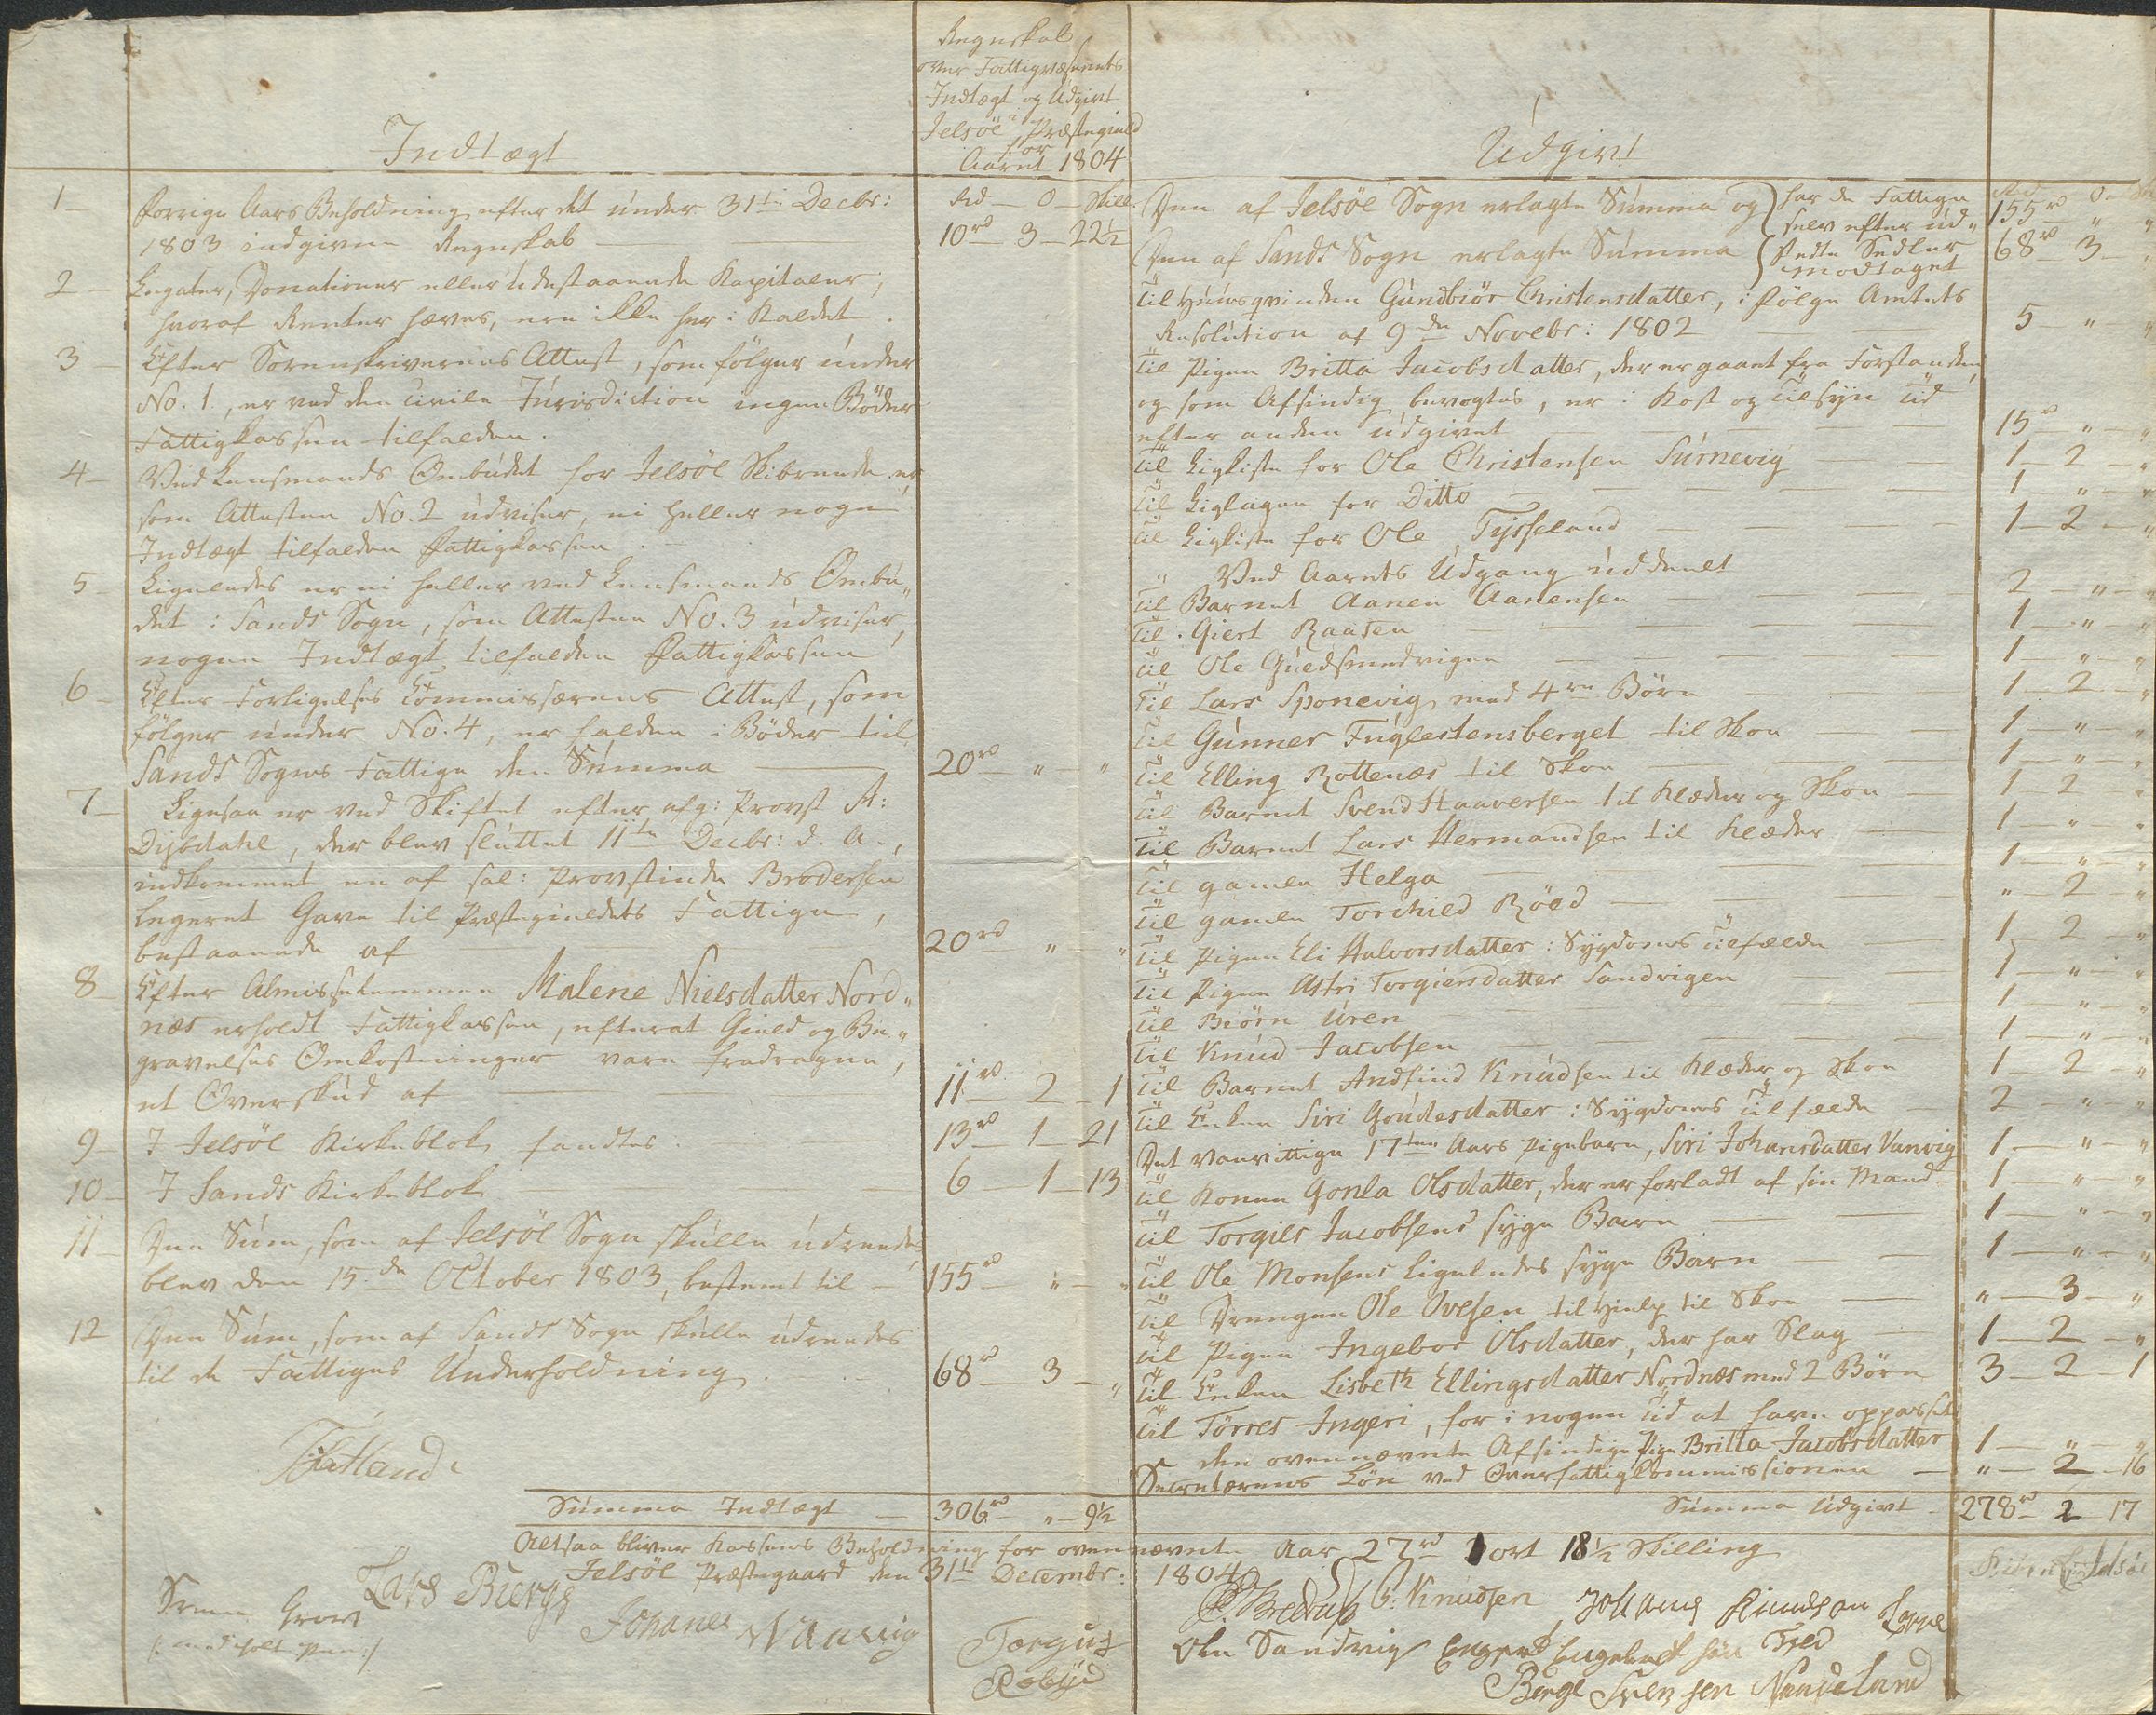 Regnskab
over Fattigvæsenets
Indtægt og Udgivt
i Jelsöe Præstegield
for
Aaret 1804
Indtægt
Rd - O - Skill.
1 Forrige Aars Beholdning efter det under 31te Decbr:
1803 indgivne Regnskab 10rd 3 22½
2 Legater, Donationer eller udestaaende Kapitaler,
hvoraf Renter hæves, ere ikke her i Kaldet.
3 Efter Sorenskriverens Attest, som fölger under
No. 1., er ved den civile Jurisdiction ingen Böder
Fattigkassen tilfalden.
4 Ved Lensmands Ombudet for Jelsöe Skibrede er,
som Attesten No. 2 udviser, ei heller nogen
Indtægt tilfalden Fattigkassen.
5 Ligeledes er ei heller ved Lensmands Ombu„
det i Sands Sogn, som Attesten No. 3 udviser,
nogen Indtægt tilfalden Fattigkassen
6 Efter Forligelses Commissærens Attest, som
fölger under No. 4, er falden i Böder til
Sands Sogns Fattige den Summa 20rd „ „
7 Ligesaa er ved Skiftet efter afg: Provst A:
Dybdahl, der blev sluttet 11te Decbr: d. A.,
indkommet en af sal: Provstinde Brodersen
legeret Gave til Præstegieldets Fattige,
bestaaende af 20rd „ „
8 Efter Almisselemmen Malene Nielsdatter Nord„
næs erholdt Fattigkassen, efterat Gield og Be„
gravelses Omkostninger vare fradragne,
et Overskud af 11rd 2 1
9 I Jelsöe Kirkeblok fandtes 13rd 1 21
10 I Sands Kirkeblok 6 1 13
11 Den Sum, som af Jelsöe Sogn skulle udredes,
blev den 15de October 1803, bestemt til 155rd „ „
12 Den Sum, som af Sands Sogn skulle udredes
til de Fattiges Underholdning 68rd 3 „
Summa Indtægt 306rd „ 9½
Udgivt
Den af Jelsöe Sogn erlagte Summa og har de Fattige 155rd „ „
selv efter ud„
Den af Sands Sogn erlagte Summa stedte Sedler 68rd 3 „
modtaget
Til Huusqvinden Gundbiör Christensdatter, i fölge Amtets
Resolution af 9de Novebr: 1802 5 „ „
Til Pigen Britta Jacobsdatter, der er gaaet fra Forstanden,
og som Afsindig bevogtes, er i Kost og Tilsyn Tid
efter anden udgivet 15rd „ „
Til Ligkiste for Ole Christensen Surnevig 1 2 „
Til Liglagen for Ditto 1 „ „
Til Ligkiste for Ole Tysseland 1 2 „
Ved Aarets Udgang uddeelt
Til Barnet Aanen Aanensen 2 „ „
Til Giert Raasen 1 „ „
Til Ole Guldsmedvigen 1 „ „
Til Lars Sponevig med 4re Börn 1 2 „
Til Gunner Fuglestensberget til Skoe 1 „ „
Til Elling Rottenæs til Skoe 1 „ „
Til Barnet Svend Haaversen til Klæder og Skoe 1 2 „
Til Barnet Lars Hermandsen til Klæder 1 „ „
Til gamle Helga 1 „ „
Til gamle Torchild Röed „ 2 „
Til Pigen Eli Halvorsdatter i Sygdoms Tilfælde 1 2 „
Til Pigen Astri Torgiersdatter Sandvigen 1 „ „
Til Biörn Uren 1 „ „
Til Knud Jacobsen 1 „ „
Til Barnet Andfind Knudsen til Klæder og Skoe 1 2 „
Til Enken Siri Goudesdatter i Sygdoms Tilfælde 2 „ „
Det vanvittige 17ten Aars Pigebarn, Siri Johansdatter Vanvig 1 „ „
Til Konen Gonla Olsdatter, der er forladt af sin Mand 1 „ „
Til Torgils Jacobsens syge Barn 1 „ „
Til Ole Monsens ligeledes syge Barn 1 „ „
Til Drengen Ole Ovesen til Hielp til Skoe „ 3 „
Til Pigen Ingebor Olsdatter, der har Slag 1 2 „
Til Enken Lisbeth Ellingsdatter Nordnæs med 2 Börn 3 2 1
Til Törres Ingeri, for i nogen Tid at have oppasset
den ovennævnte Afsindige Pige Britta Jacobsdatter 1 „ „
Secretærens Lön ved Overfattigkommissionen „ 2 16
Summa Udgivt 278rd 2 17
Altsaa bliver Kassens Beholdning for ovennævnte Aar 27rd 1 ort 18½ Skilling
Jelsöe Præstegaard den 31te Decembr: 1804
Lars Bierge
Johanes Waavig
(: med holt Pen :)
Knudsen
Johannes Knudsen
Ole Sandvig
Børge Svensen